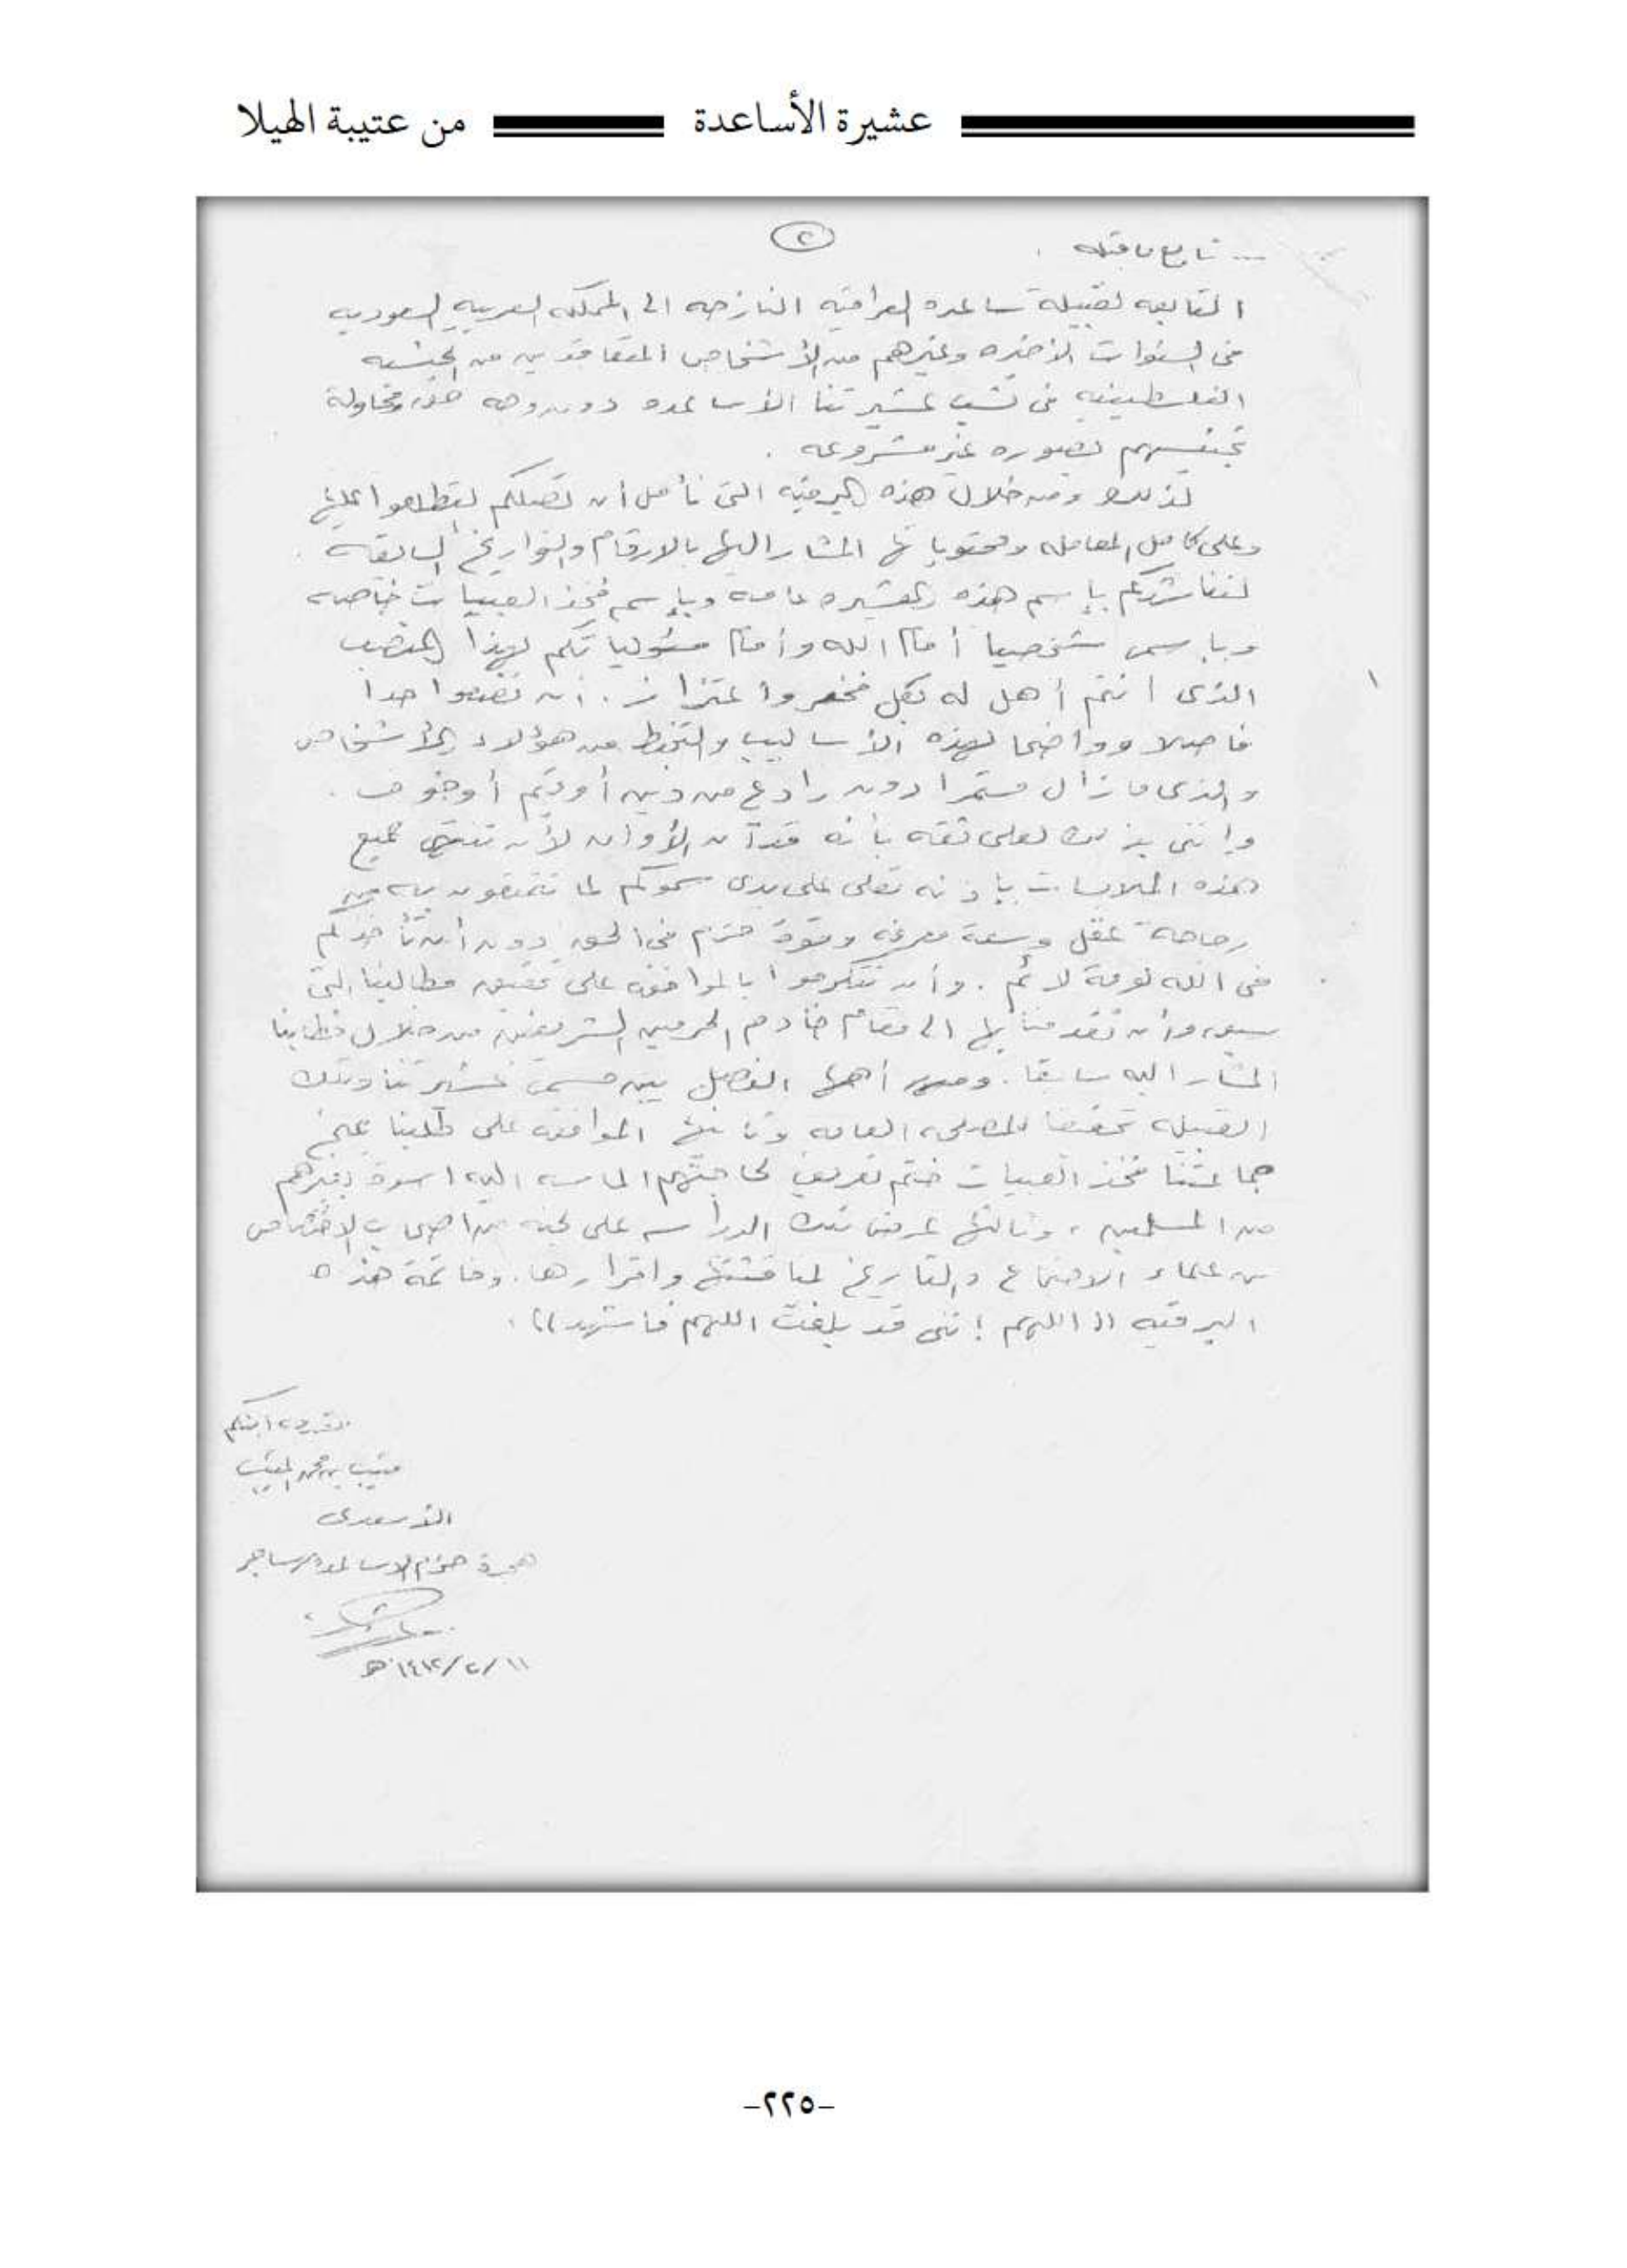 عشيرة الأساعدة من عتيبة الهيلا
٢
... تابع ما قبله .
التابعه لقبيلة ساعده العراقيه النازحه الى المملكه العربيه السعوديه
فى السنوات الاخيره وغيرهم من الأشخاص المتعاقدين من الجنسيه
الفلسطينيه فى نسب عشيرتنا الأساعده دون وجه حق ومحاولة
تجنيسهم بصوره غير مشروعه .
لذلك ومن خلال هذه البرقيه التى نأمل أن تصلكم لتطلعوا عليها
وعلى كامل المعامله ومحتوياتها المشار اليها بالارقام والتواريخ السابقة .
لنناشدكم بإسم هذه العشيره عامه وبإسم فخذ العبيات خاصه
وبإسمى شخصيا أمام الله وأمام مسئولياتكم لهذا المنصب
الذى انتم أهل له بكل فخر واعتزاز . أن تضعوا حدا
فاصلا وواضحا لهذه الأساليب والتخبط من هؤلاء الأشخاص
والذى مازال مستمرا دون رادع من دين أو قيم أو خوف .
وإننى بذلك لعلى ثقه بأنه قد آن الأوان لأن تنتهى جميع
هذه الملابسات بإذنه تعلى على يدى سموكم لما تتمتعون به من
رجاحة عقل وسعة معرفه وقوة حزم فى الحق دون أن تأخذكم
فى الله لومة لائم . وأن تتكرموا بالموافقه على تحقيق مطالبنا التى
سبق وأن تقدمنا بها الى مقام خادم الحرمين الشريفين من خلال خطابنا
المشار اليه سابقا . ومن أهمها الفصل بين مسمى عشيرتنا وتلك
القبيله تحقيقا للمصلحه العامه وثانيها الموافقه على طلبنا بمنح
جماعتنا فخذ العبيات ختم تعريف لحاجتهم الماسه اليه اسوة بغيرهم
من المسلمين ، وثالثها عرض تلك الدراسه على لجنه من اصحاب الاختصاص
من علماء الاجتماع والتاريخ لمناقشتها واقرارها . وخاتمة هذه
البرقيه (( اللهم إننى قد بلغت اللهم فاشهد )) .
ابنكم
بن محمد
الأسعدى
هجرة حزم الاساعده ساجر
١١/٢/١٤١٢هـ
-٢٢٥-